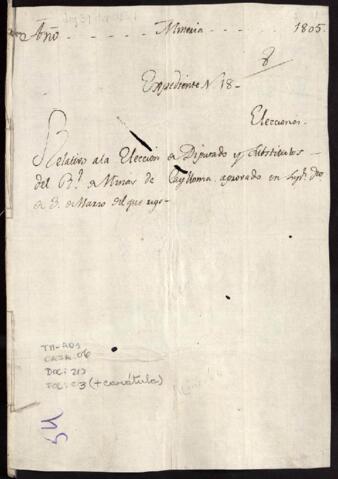 Año Mineria 1805.
8
Expediente N. 18-
Elecciones
Relativo a la Eleccion de Diputado y Substitutos
del Rl. de Minas de Caylloma, aprovado en
de Marzo del que rige-
TM-AD1
CAJA: 06
DOC: 213
FOL: 03 (+ carátula)